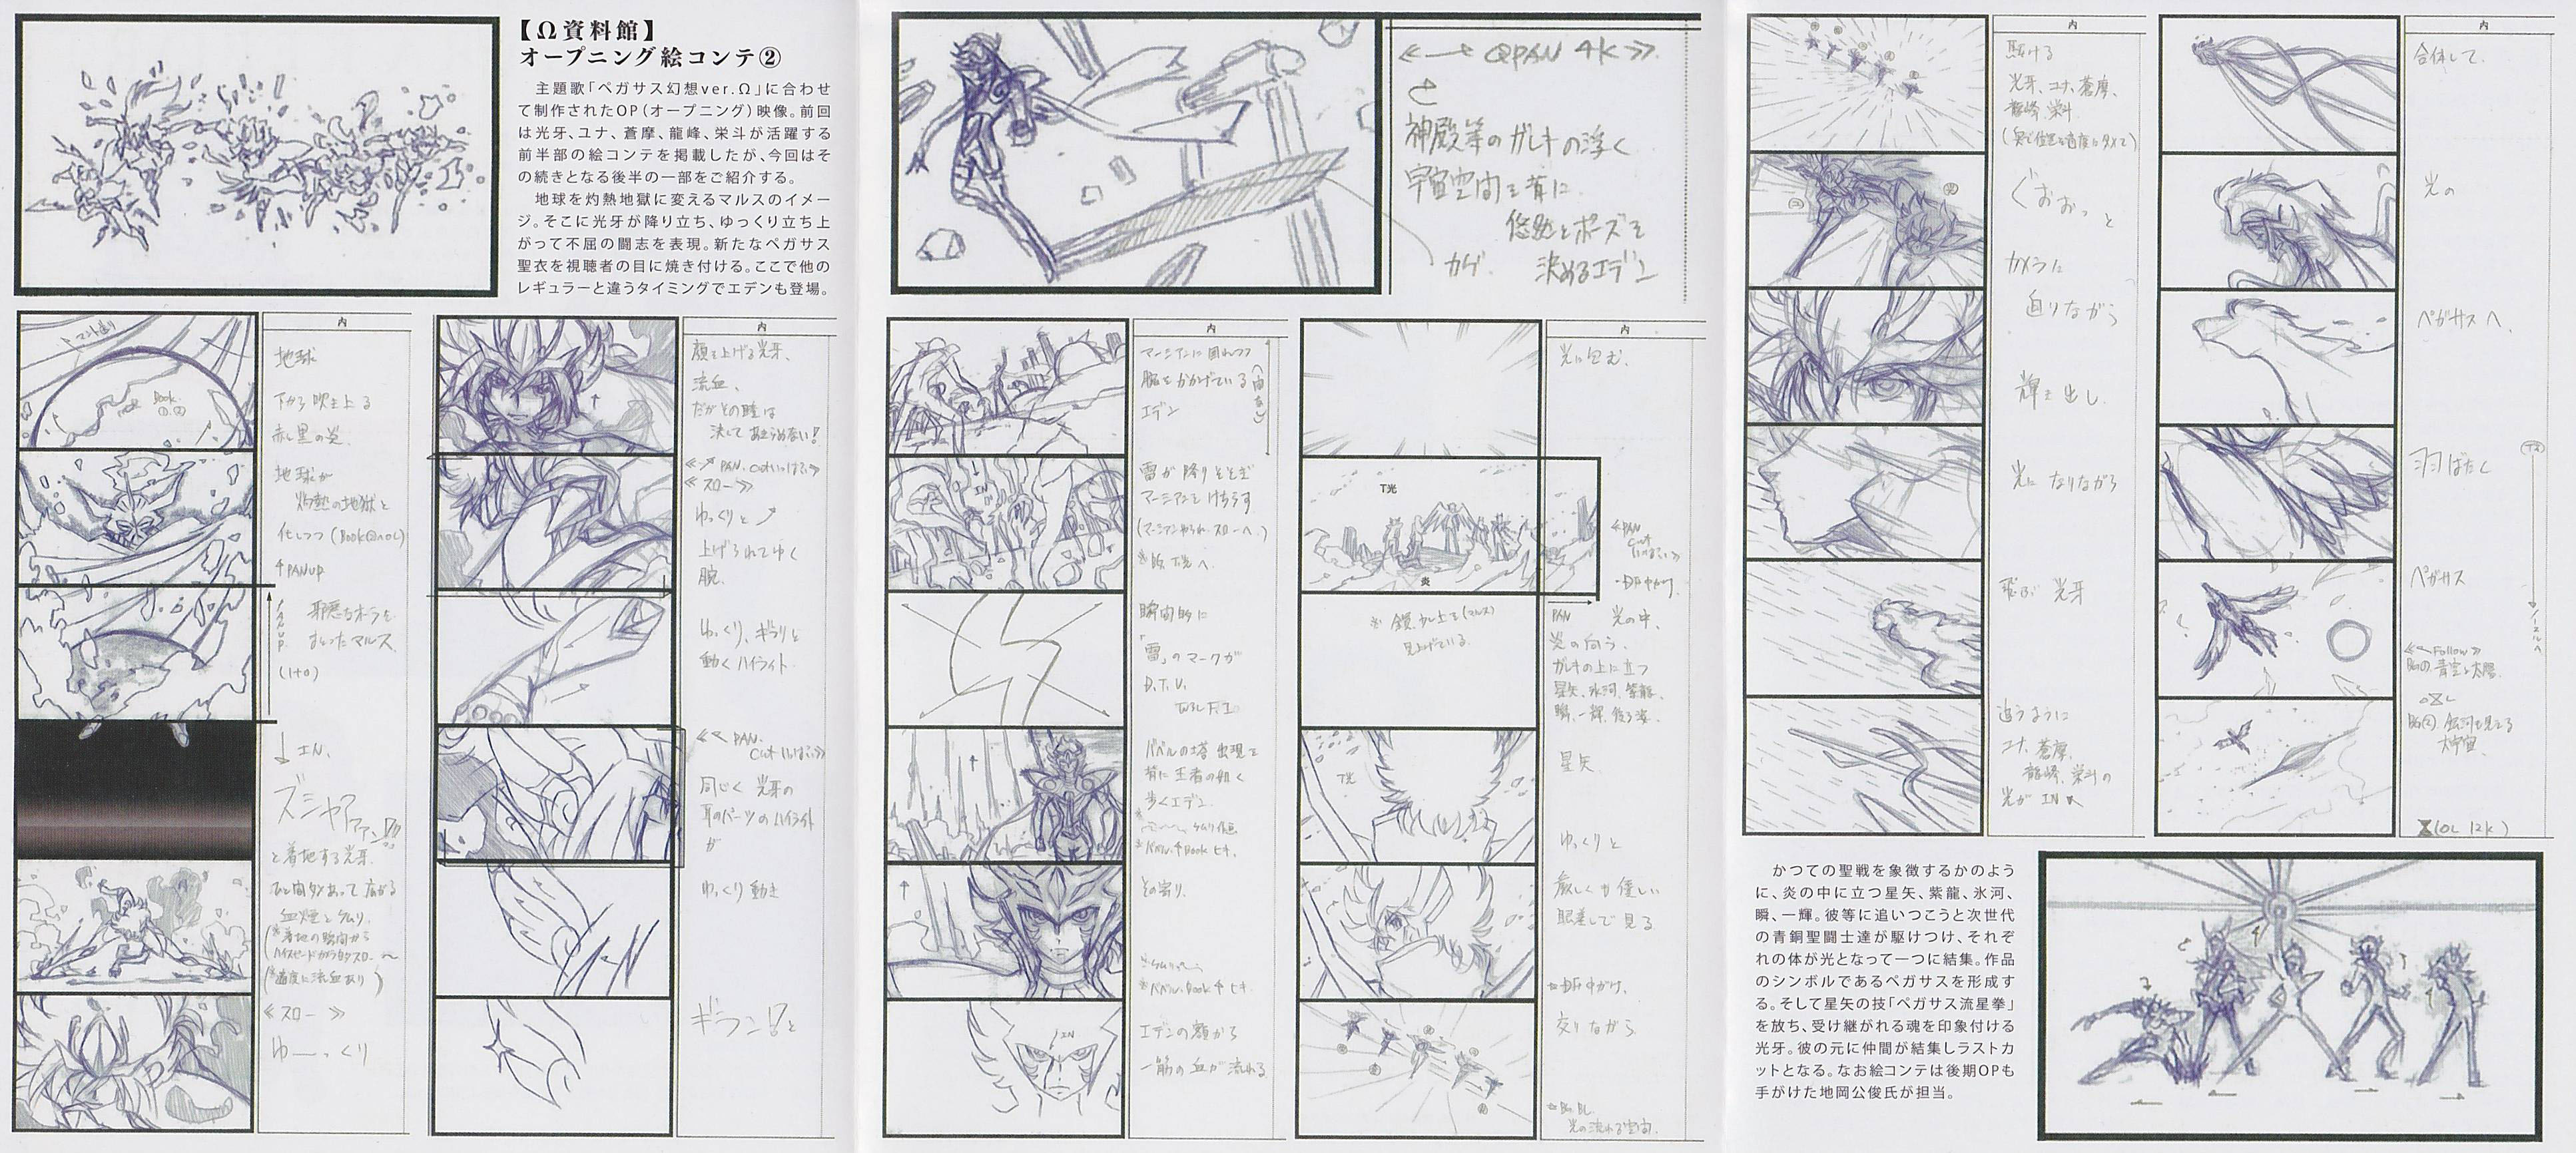 【Ω資料館】
オープニング絵コンテ②
主題歌「ペガサス幻想ver.Ω」に合わせ
て制作されたOP(オープニング)映像。前回
は光牙、ユナ、蒼摩、龍峰、栄斗が活躍する
前半部の絵コンテを掲載したが、今回はそ
の続きとなる後半の一部をご紹介する。
地球を灼熱地獄に変えるマルスのイメー
ジ。そこに光牙が降り立ち、ゆっくり立ち上
がって不屈の闘志を表現。新たなペガサス
聖衣を視聴者の目に焼き付ける。ここで他の
レギュラーと違うタイミングでエデンも登場。
内
地球
下から吹き上る
赤と黒の炎
地球が
灼熱の地獄と
化しつつ
4PANUP
邪悪なオーラを
まとったマルス
(1+0)
IN.
と着地する光牙.
≪スロー≫
ゆーっくり
内
顔を上げる光牙、
流血、
だがその瞳は
決してあきらめない!
≪スロー≫
ゆっくりと
上げられてゆく
腕.
ゆっくり、ギラリと
動くハイライト
PAN.
同じく 光牙の
耳のパーツのハイライト
が
ゆっくり動き
ギラン!?と
QPAN 4K
神殿等のガレキの浮く
宇宙空間を背に
悠然とポーズを
カゲ. 決めるエデン
内
マーシアンに囲れつつ
腕をかかげている
エデン
雷が降りそそぎ
マーシアンをけちらす
IN
瞬間的に
「雷」のマークが
D.T.U.
バベルの塔出現を
背に王者の如く
歩くエデン.
その寄り.
IN
エデンの額から
一筋の血が流れる
内
光に包む.
T光
炎
見上げている.
PAN 光の中、
炎の向う、
ガレキの上に立つ
星矢、氷河、紫龍、
瞬、一輝、後ろ姿.
T光
星矢.
ゆっくりと
厳しくも優しい
眼差しで見る
交りながら
光の流れる空間.
内
駆ける
光牙、ユナ、蒼摩、
龍峰、栄斗
ぐおおっと
カメラに
迫りながら
輝き出し.
光になりながら
飛ぶ 光牙
追うように
ユナ、蒼摩、
龍峰、栄斗の
光がIN
内
合体して.
光の
ペガサスへ.
羽ばたく
ペガサス
≪Follow≫
(OL 12K)
かつての聖戦を象徴するかのよう
に、炎の中に立つ星矢、紫龍、氷河、
瞬、一輝。彼等に追いつこうと次世代
の青銅聖闘士達が駆けつけ、それぞ
れの体が光となって一つに結集。作品
のシンボルであるペガサスを形成す
る。そして星矢の技「ペガサス流星拳」
を放ち、受け継がれる魂を印象付ける
光牙。彼の元に仲間が結集しラストカ
ットとなる。なお絵コンテは後期OPも
手がけた地岡公俊氏が担当。